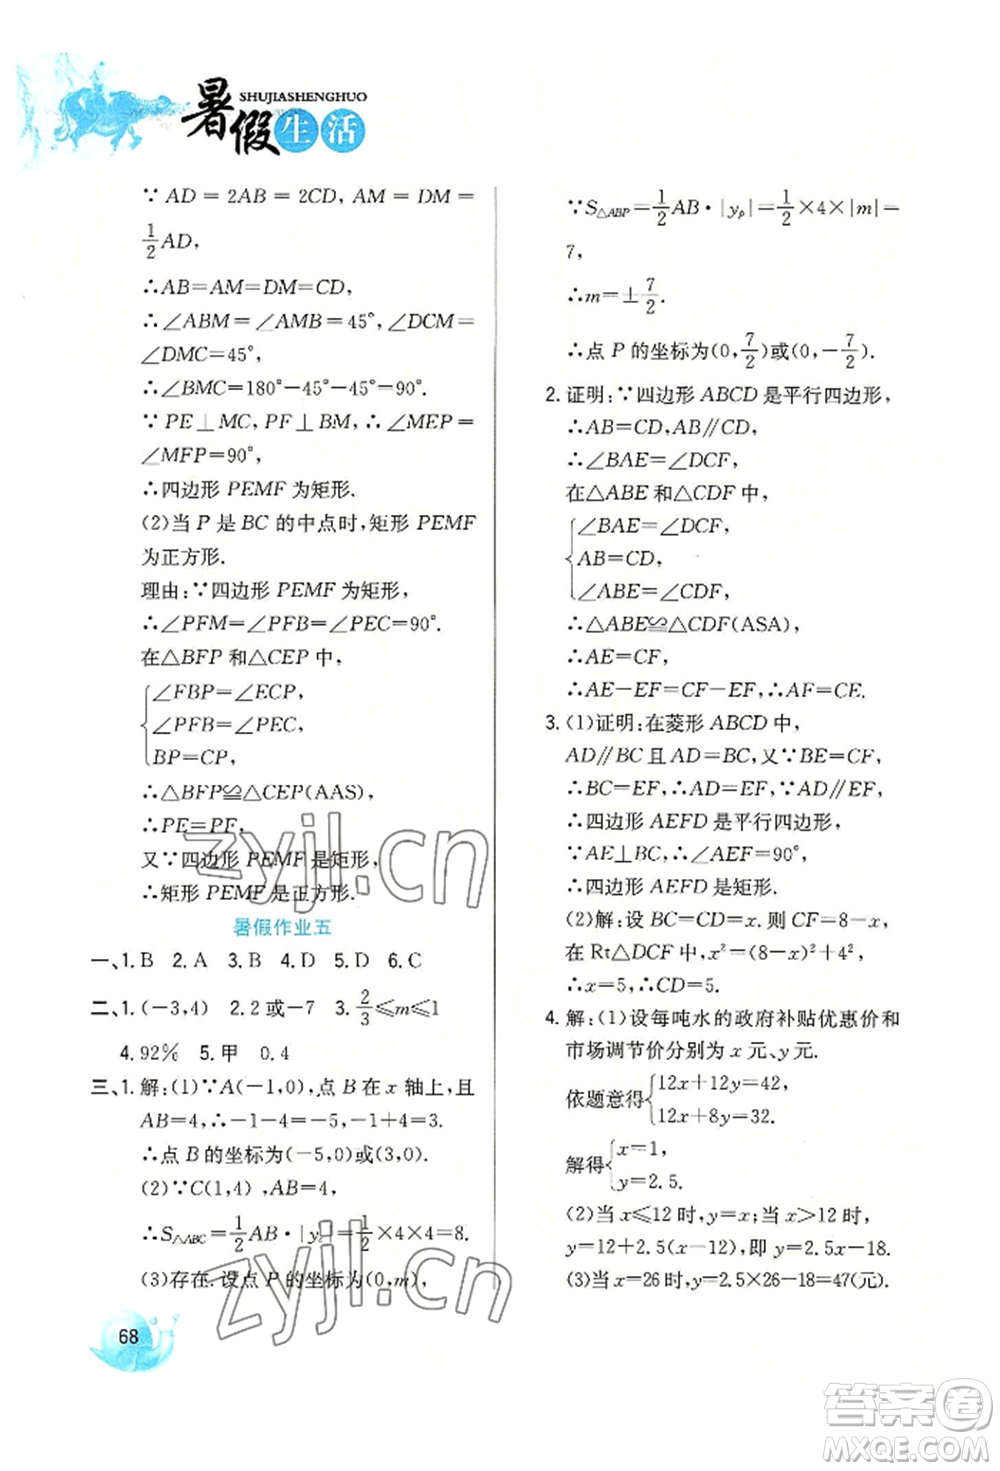 暑假生活
SHUJIASHENGHUO
∵AD=2AB=2CD,AM=DM=
1/2AD,
∴AB=AM=DM=CD,
∴∠ABM=∠AMB=45°,∠DCM=
∠DMC=45°,
∴∠BMC=180°-45°-45°=90°.
∵PE⊥MC,PF⊥BM,∴∠MEP=
∠MFP=90°,
∴四边形 PEMF 为矩形.
(2)当 P 是 BC 的中点时,矩形 PEMF
为正方形.
理由:∵四边形 PEMF 为矩形,
∴∠PFM=∠PFB=∠PEC=90°.
在△BFP 和△CEP 中,
{∠FBP=∠ECP,
∠PFB=∠PEC,
BP=CP,
∴△BFP≌△CEP(AAS),
∴PE=PF,
又∵四边形 PEMF 是矩形,
∴矩形 PEMF 是正方形.
暑假作业五
一、1.B 2.A 3.B 4.D 5.D 6.C
二、1.(-3,4) 2.2或-7 3.2/3≤m≤1
4.92% 5.甲 0.4
三、1.解:(1)∵A(-1,0),点 B 在 x 轴上,且
AB=4,∴-1-4=-5,-1+4=3.
∴点 B 的坐标为(-5,0)或(3,0).
(2)∵C(1,4),AB=4,
∴S△ABC=1/2AB·|y□|=1/2×4×4=8.
(3)存在.设点 P 的坐标为(0,m),
68
∵S△ABP=1/2AB·|yp|=1/2×4×|m|=
7,
∴m=±7/2.
∴点 P 的坐标为(0,7/2)或(0,-7/2).
2.证明:∵四边形 ABCD 是平行四边形,
∴AB=CD,AB∥CD,
∴∠BAE=∠DCF,
在△ABE 和△CDF 中,
{∠BAE=∠DCF,
AB=CD,
∠ABE=∠CDF,
∴△ABE≌△CDF(ASA),
∴AE=CF,
∴AE-EF=CF-EF,∴AF=CE.
3.(1)证明:在菱形 ABCD 中,
AD∥BC 且 AD=BC,又∵BE=CF,
∴BC=EF,∴AD=EF,∵AD∥EF,
∴四边形 AEFD 是平行四边形,
∵AE⊥BC,∴∠AEF=90°,
∴四边形 AEFD 是矩形.
(2)解:设 BC=CD=x.则 CF=8-x,
在 Rt△DCF 中,x²=(8-x)²+4²
∴x=5,∴CD=5.
4.解:(1)设每吨水的政府补贴优惠价和
市场调节价分别为 x 元、y 元.
依题意得{12x+12y=42,
12x+8y=32.
解得{x=1,
y=2.5.
(2)当 x≤12 时,y=x;当 x>12 时,
y=12+2.5(x-12),即 y=2.5x-18.
(3)当 x=26 时,y=2.5×26-18=47(元).
zyjl.cn
zyjl.cn
答案圈
MXQE.COM